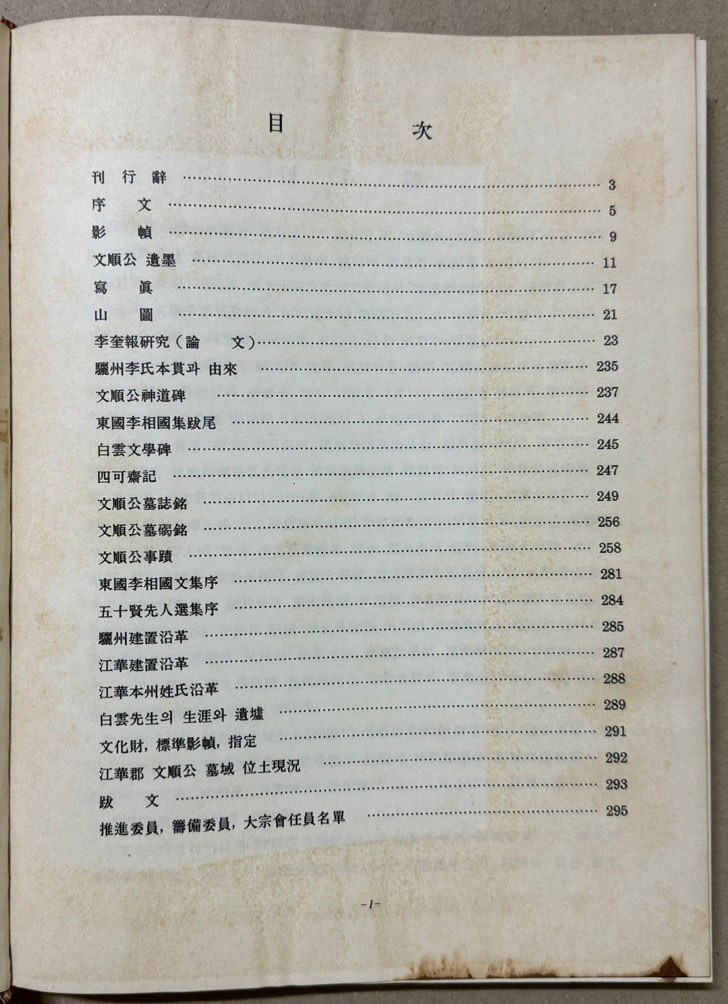 目 次
刊 行 辭 ………… 3
序 文 ………… 5
影 幀 ………… 9
文順公 遺墨 ………… 11
寫 眞 ………… 17
山 圖 ………… 21
李奎報硏究(論 文) ………… 23
驪州李氏本貫과 由來 ………… 235
文順公神道碑 ………… 237
東國李相國集跋尾 ………… 244
白雲文學碑 ………… 245
四可齋記 ………… 247
文順公墓誌銘 ………… 249
文順公墓碣銘 ………… 256
文順公事蹟 ………… 258
東國李相國文集序 ………… 281
五十賢先人選集序 ………… 284
驪州建置沿革 ………… 285
江華建置沿革 ………… 287
江華本州姓氏沿革 ………… 288
白雲先生의 生涯와 遺墟 ………… 289
文化財, 標準影幀, 指定 ………… 291
江華郡 文順公 墓域 位土現況 ………… 292
跋 文 ………… 293
推進委員, 籌備委員, 大宗會任員名單 ………… 295
-1-